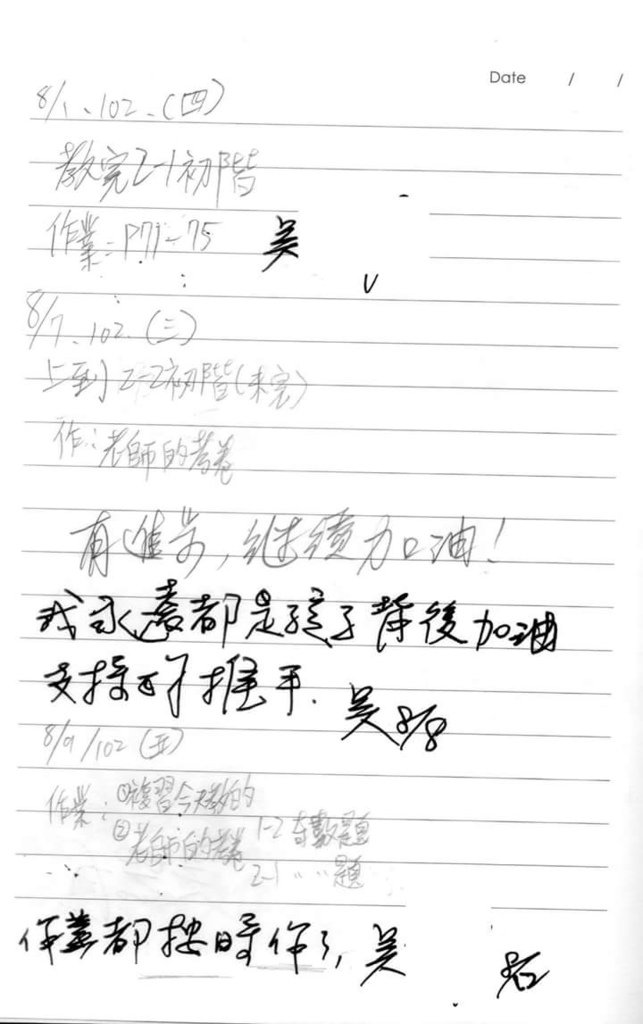 Date / /
8/1、102、(四)
教完2-1初階
作業:P71-75 吳
V
8/7、102、(三)
上到2-2初階(未完)
作:老師的考卷
有進步,继續加油!
我永遠都是孩子背後加油
支持的推手. 吳 8/8
8/9/102 (五)
作業:①複習今天教的
②老師的考卷 1-2 奇數題
2-1 〃 〃 題
作業都按時作了, 吳